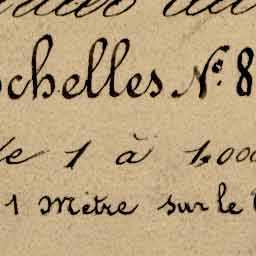 ochelles N° 8
de 1 à 1,000
1 Mètre sur le